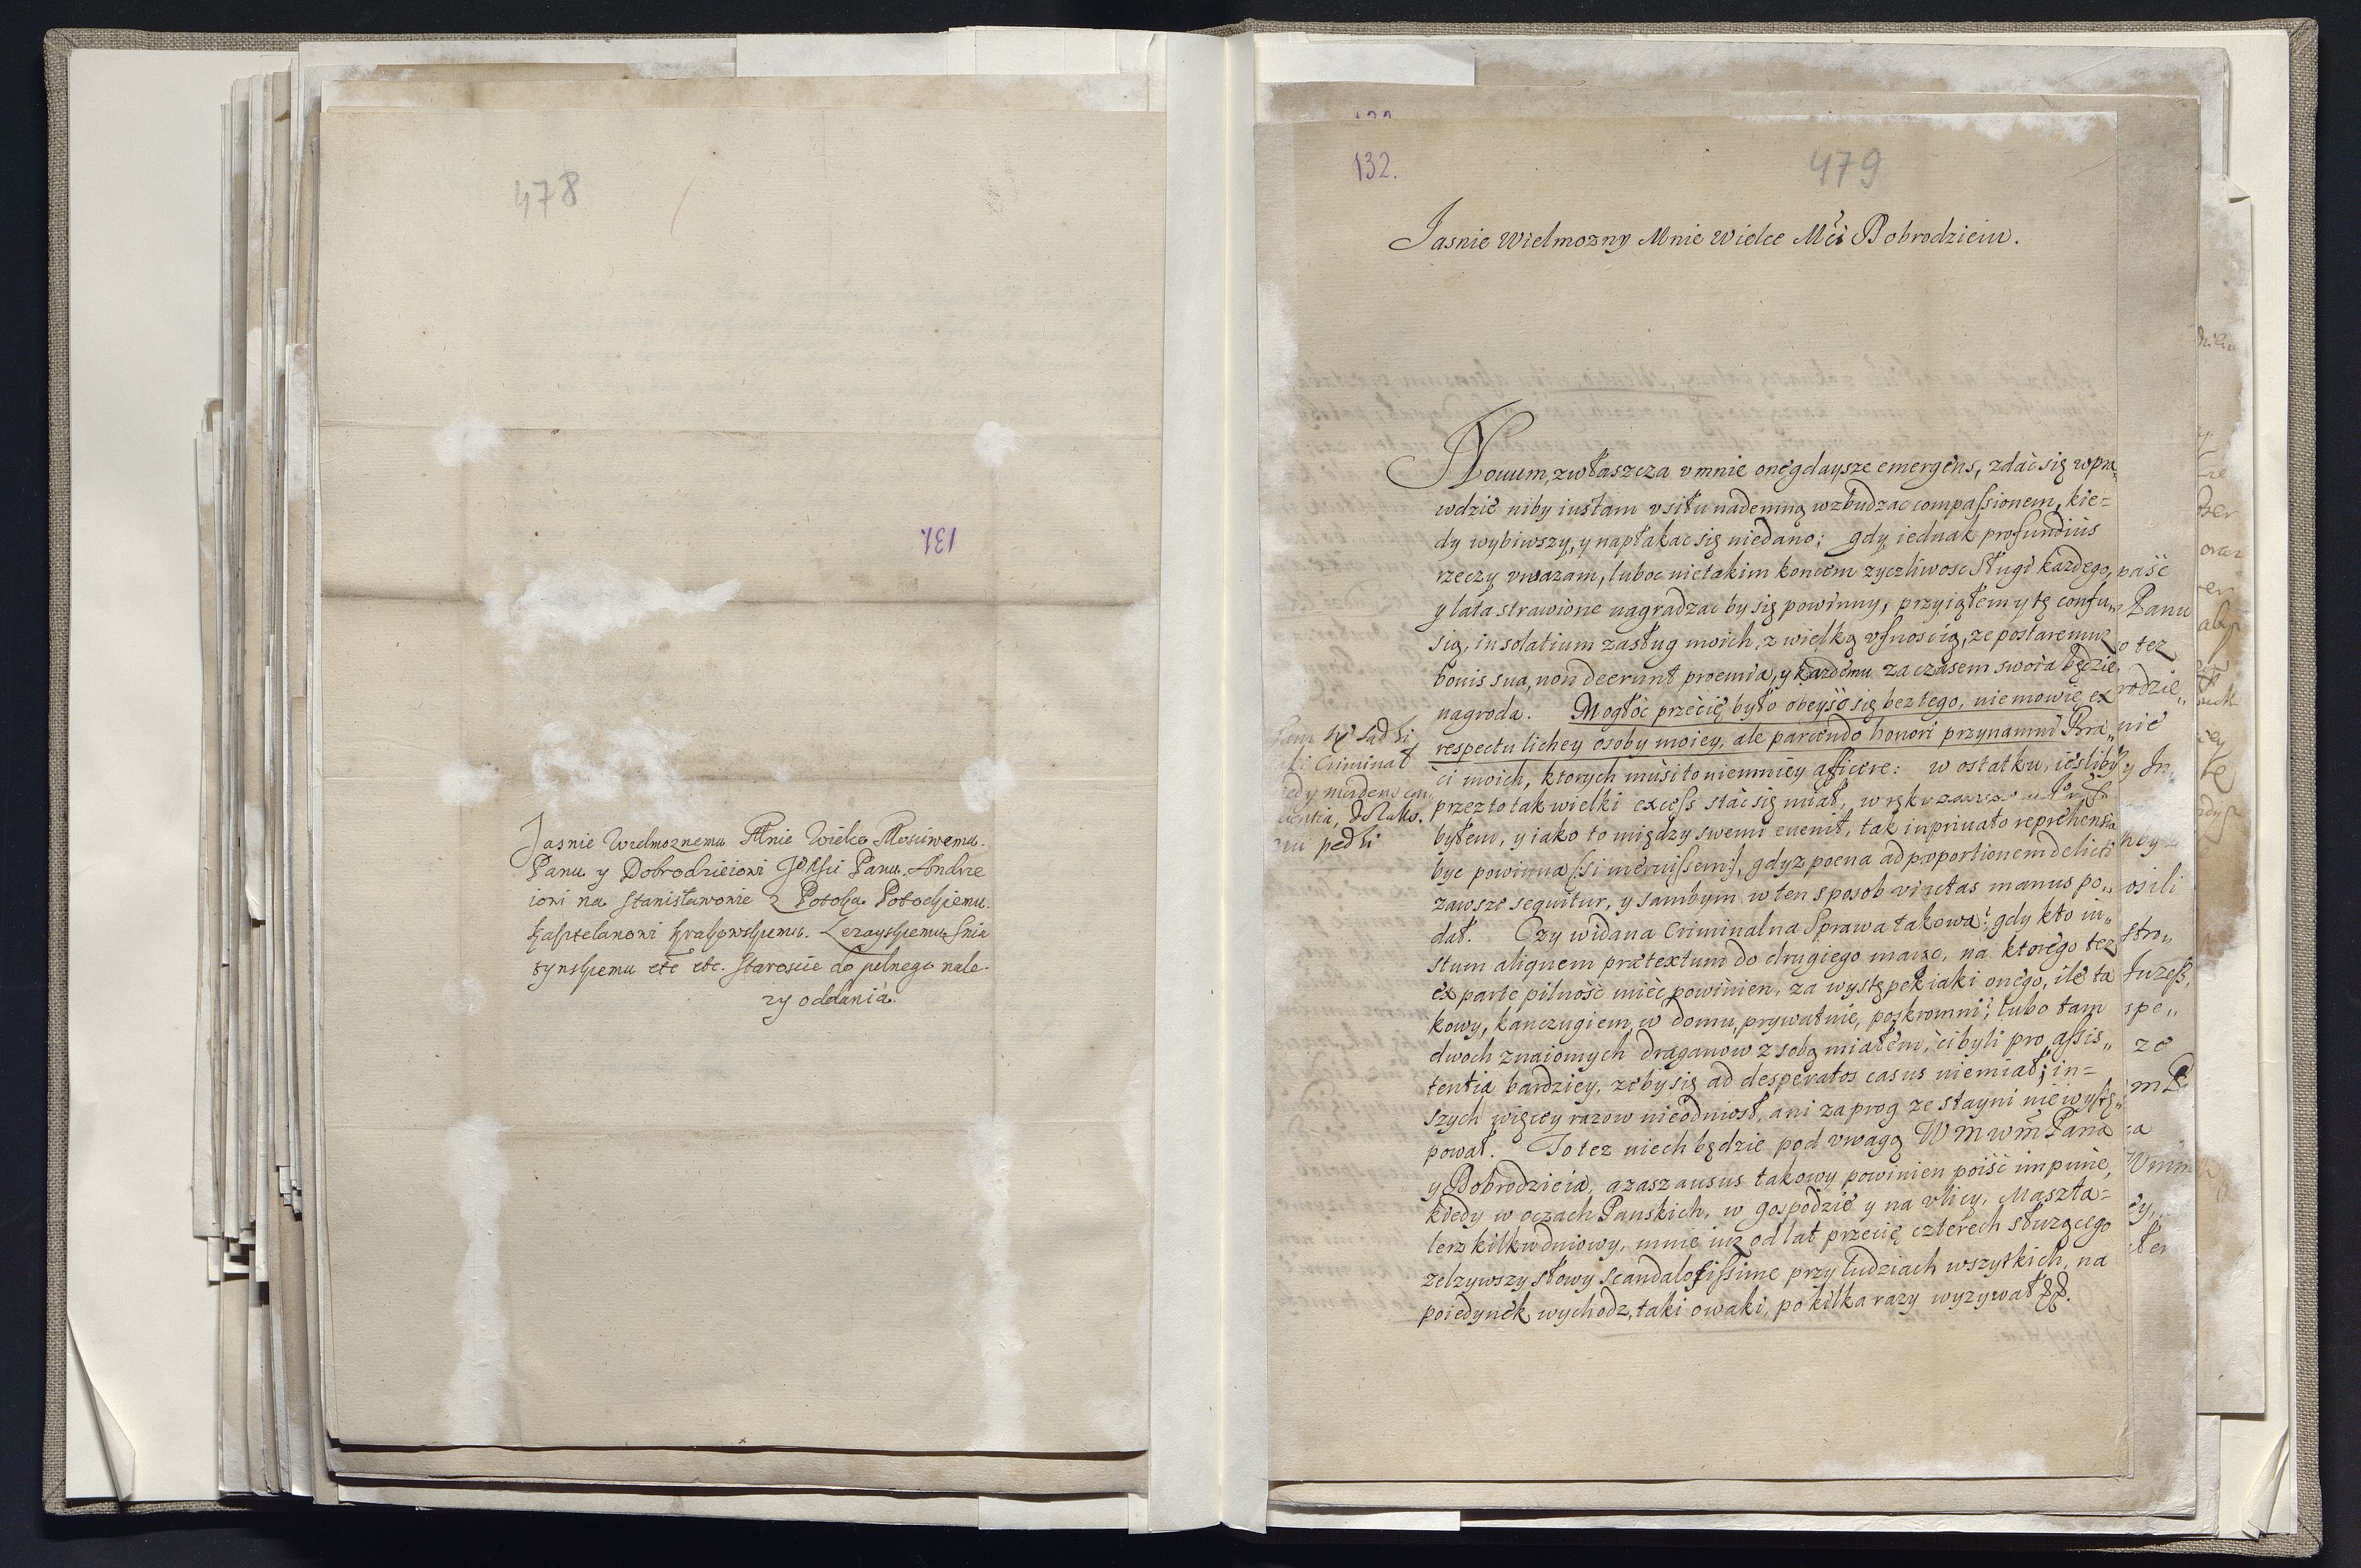 478
131.
Jasnie Wielmoznemu Mnie Wielce Mosciwemu.
Panu y Dobrodzieiowi Je Msci Panu Andrze
iowi na Stanisławowie z Potoka Potockiemu.
Kasztelanowi Krakowskiemu. Lezayskiemu Snia
tynskiemu etc etc. Staroscie do pełnego nale-
zy oddania.
132.
479
Jasnie Wielmozny Mnie Wielce Mći Dobrodzieiu.
Nouum, zwłaszcza v mnie onegdaysze emergens, zdać się wpra„
wdzie niby iustam vsitu nademną wzbudzac compassionem, kie=
dy wybiwszy, y napłakac się niedano; gdy iednak profundius
rzeczy vwazam, luboc nietakim koncem zyczliwosc Sługi kazdego,
y lata strawione nagradzac by się powinny, przyiąłem y tę confu„
sią, in solatium zasług moich, z wielką vfnoscią, ze postaremu
bonis sua, non deerunt proemia, y kazdemu za czasem swoia będzie
nagroda. Mogłoć przećię było obeyść się bez tego, niemowię ex
respectu lichey osoby moiey, ale parcendo honori przynamni Bra„
ći moich, ktorych musi to niemniey afficere: w ostatku, iesliby
przez to tak wielki excess stać się miał, w ręku
byłem, y iako to między swemi euenit, tak in priuato reprehensia
byc powinna [si meruissem], gdyz poena ad proportionem delicti
zawsze sequitur, y sambym w ten sposob vinctas manus po„
dał. Czy widana Criminalna Sprawa takowa? gdy kto iu„
stum aliquem prætextum do drugiego maiąc, na ktorego tez
ex parte pilność mieć powinien, za występek iaki onego, ile ta
kowy, kanczugiem, w domu, prywatnie, poskromni; lubo tam
dwoch znaiomych draganow z sobą miałem, ći byli pro assis„
tentia bardziey, zeby się ad desperatos casus niemiał; in=
szych więcey razow nieodniosł, ani za prog ze stayni niewystę„
pował. To tez niech będzie pod vwagą WMWM Pana
y Dobrodzieia, azasz ausus takowy powinien poiść impune,
kiedy w oczach Panskich, w gospodzie y na vlicy, Maszta=
lerz kilkudniowy, mnie iuz od lat przecię czterech słuzącego
zelzywszy słowy scandalosissime przy ludziach wszytkich, na
poiedynek wychodz, taki owaki, po kilka razy wyzywał
Criminał
pedti
paść
Panu
o tez
rodzie„
nie
y Jn„
osili
stro„
Juzess,
spe„
ze